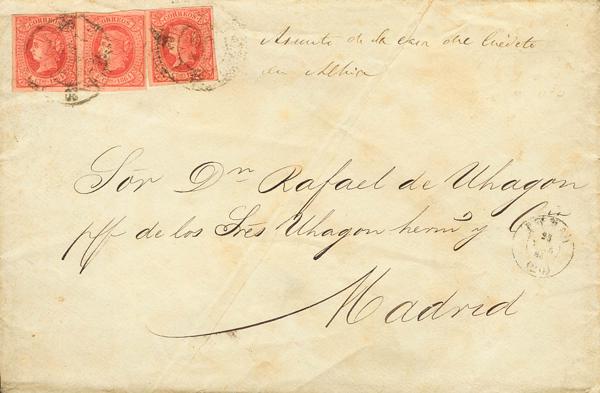 CORREOS CORREOS CORREOS
Asunto de la casa de Crédito
en
Sor Dn Rafael de Uhagon
p/p de los Sres Uhagon hermos y Cia
Madrid
23
(20)